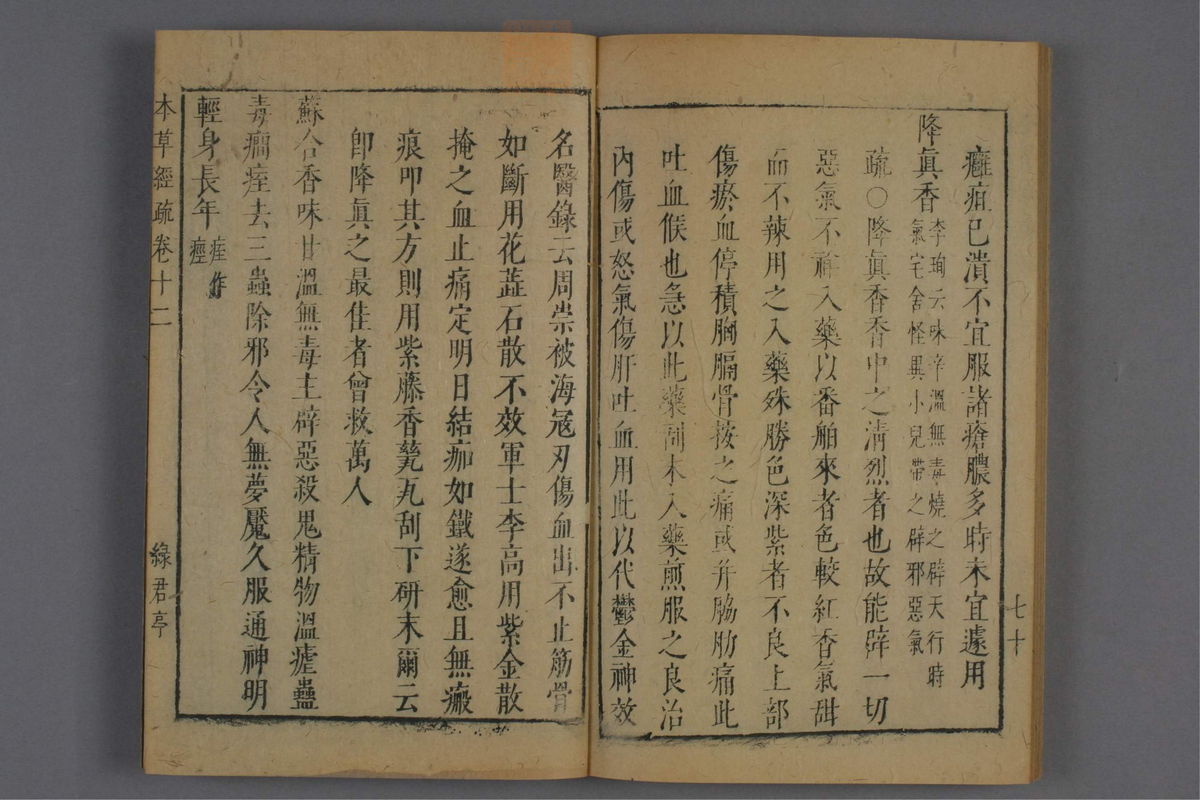 癰疽已潰不宜服諸瘡膿多時未宜遽用
降眞香李珣云味辛溫無毒燒之辟天行時氣宅舍怪異小兒帶之辟邪惡氣
疏○降眞香香中之淸烈者也故能辟一切
惡氣不祥入藥以番舶來者色較紅香氣甜
而不辣用之入藥殊勝色深紫者不良上部
傷瘀血停積胸膈骨按之痛或幷脇肋痛此
吐血候也急以此藥刮末入藥煎服之良治
內傷或怒氣傷肝吐血用此以代鬱金神效
七十
名醫錄云周崇被海寇刃傷血出不止筋骨
如斷用花蕋石散不效軍士李高用紫金散
掩之血止痛定明日結痂如鐵遂愈且無瘢
痕叩其方則用紫藤香甆瓦刮下研末爾云
卽降眞之最佳者曾救萬人
蘇合香味甘溫無毒主辟惡殺鬼精物溫瘧蠱
毒癇痓去三蟲除邪令人無夢魘久服通神明
輕身長年痓作痙
本草經疏卷十二
綠君亭